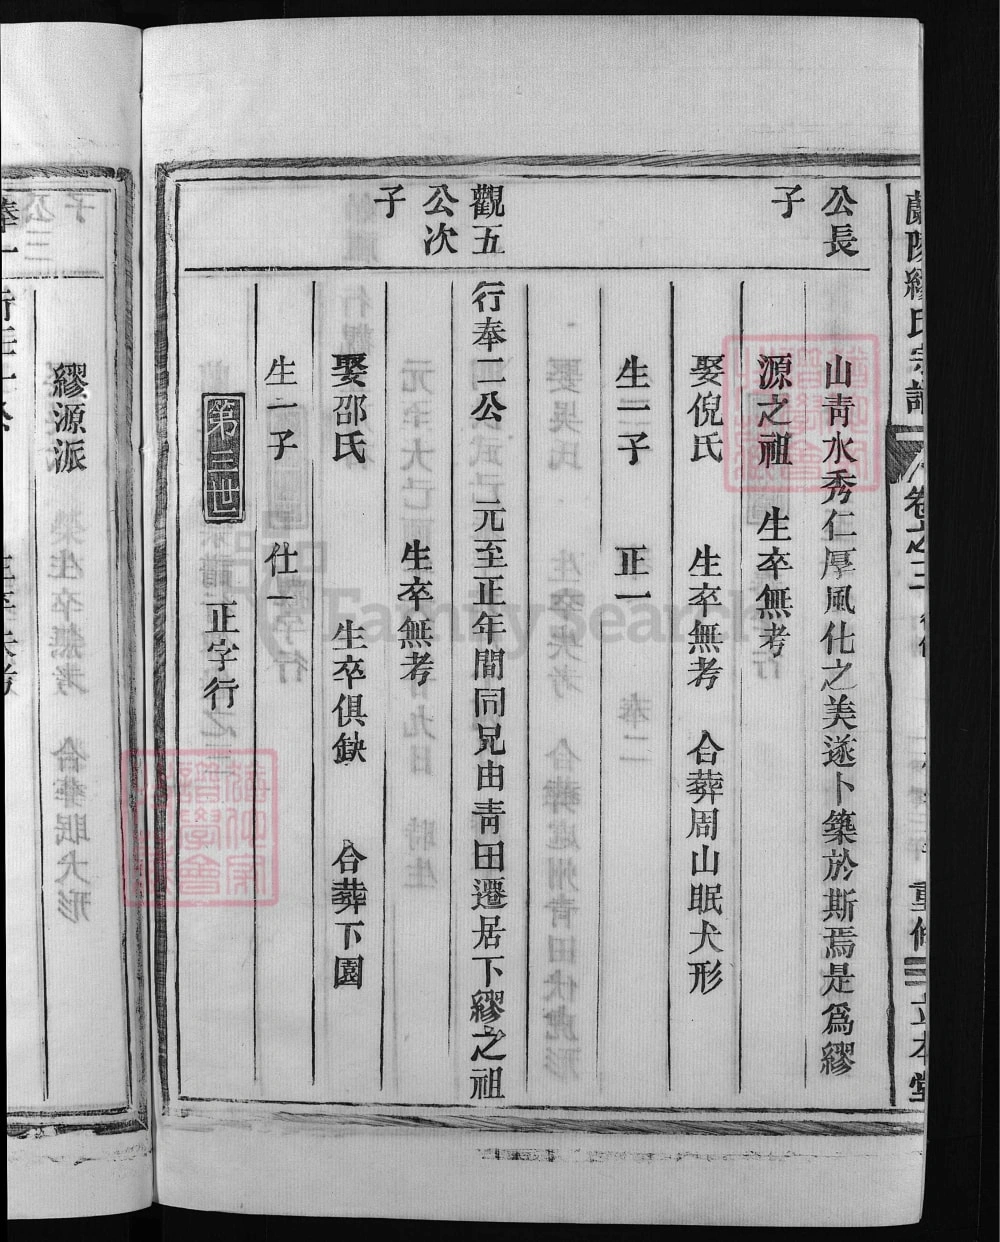 蘭陵繆氏宗譜 卷之三 重修 立本堂
公長
子
山靑水秀仁厚風化之美遂卜築於斯焉是爲繆
源之祖 生卒無考
娶倪氏 生卒無考 合葬周山眠犬形
生一子 正一
觀五
公次
子
行奉二公 元至正年間同兄由靑田遷居下繆之祖
生卒無考
娶邵氏 生卒俱缺 合葬下園
生一子 仕一
第三世 正字行
繆源派
FamilySearch